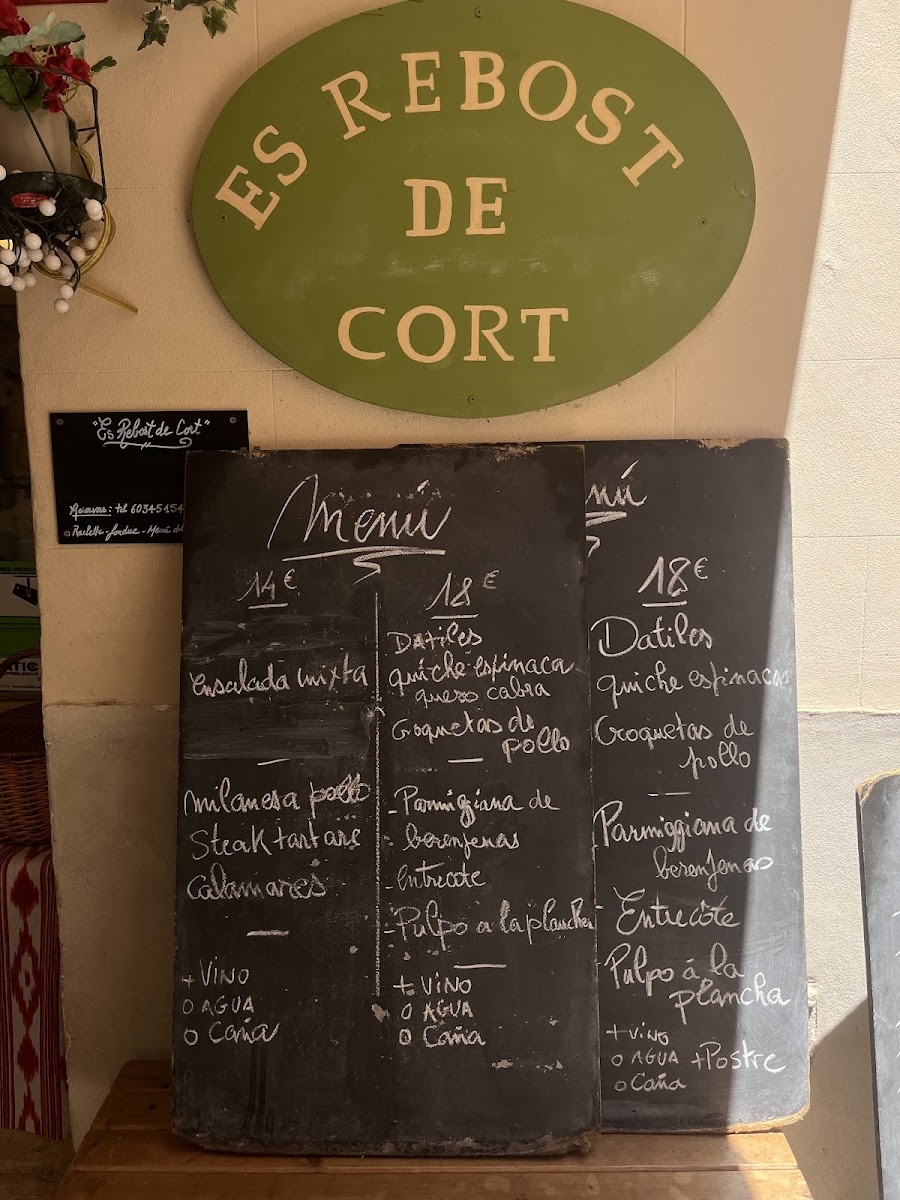 ES REBOST
DE
CORT
"Es Rebost de Cort"
Reservas: tel 60345154
o Raclette - fondue - Menú
Menú
14€
Ensalada mixta
milanesa pollo
Steak tartare
Calamares
+ VINO
O AGUA
O Caña
18€
DATILES
quiche espinaca
queso cabra
Croquetas de
pollo
- Parmigiana de
berenjenas
- Entrecote
- Pulpo a la plancha
+ VINO
O AGUA
O Caña
nú
18€
Datiles
quiche espinacas
Croquetas de
pollo
Parmiggiana de
berenjenas
Entrecôte
Pulpo á la
plancha
+ VINO
O AGUA + Postre
O Caña